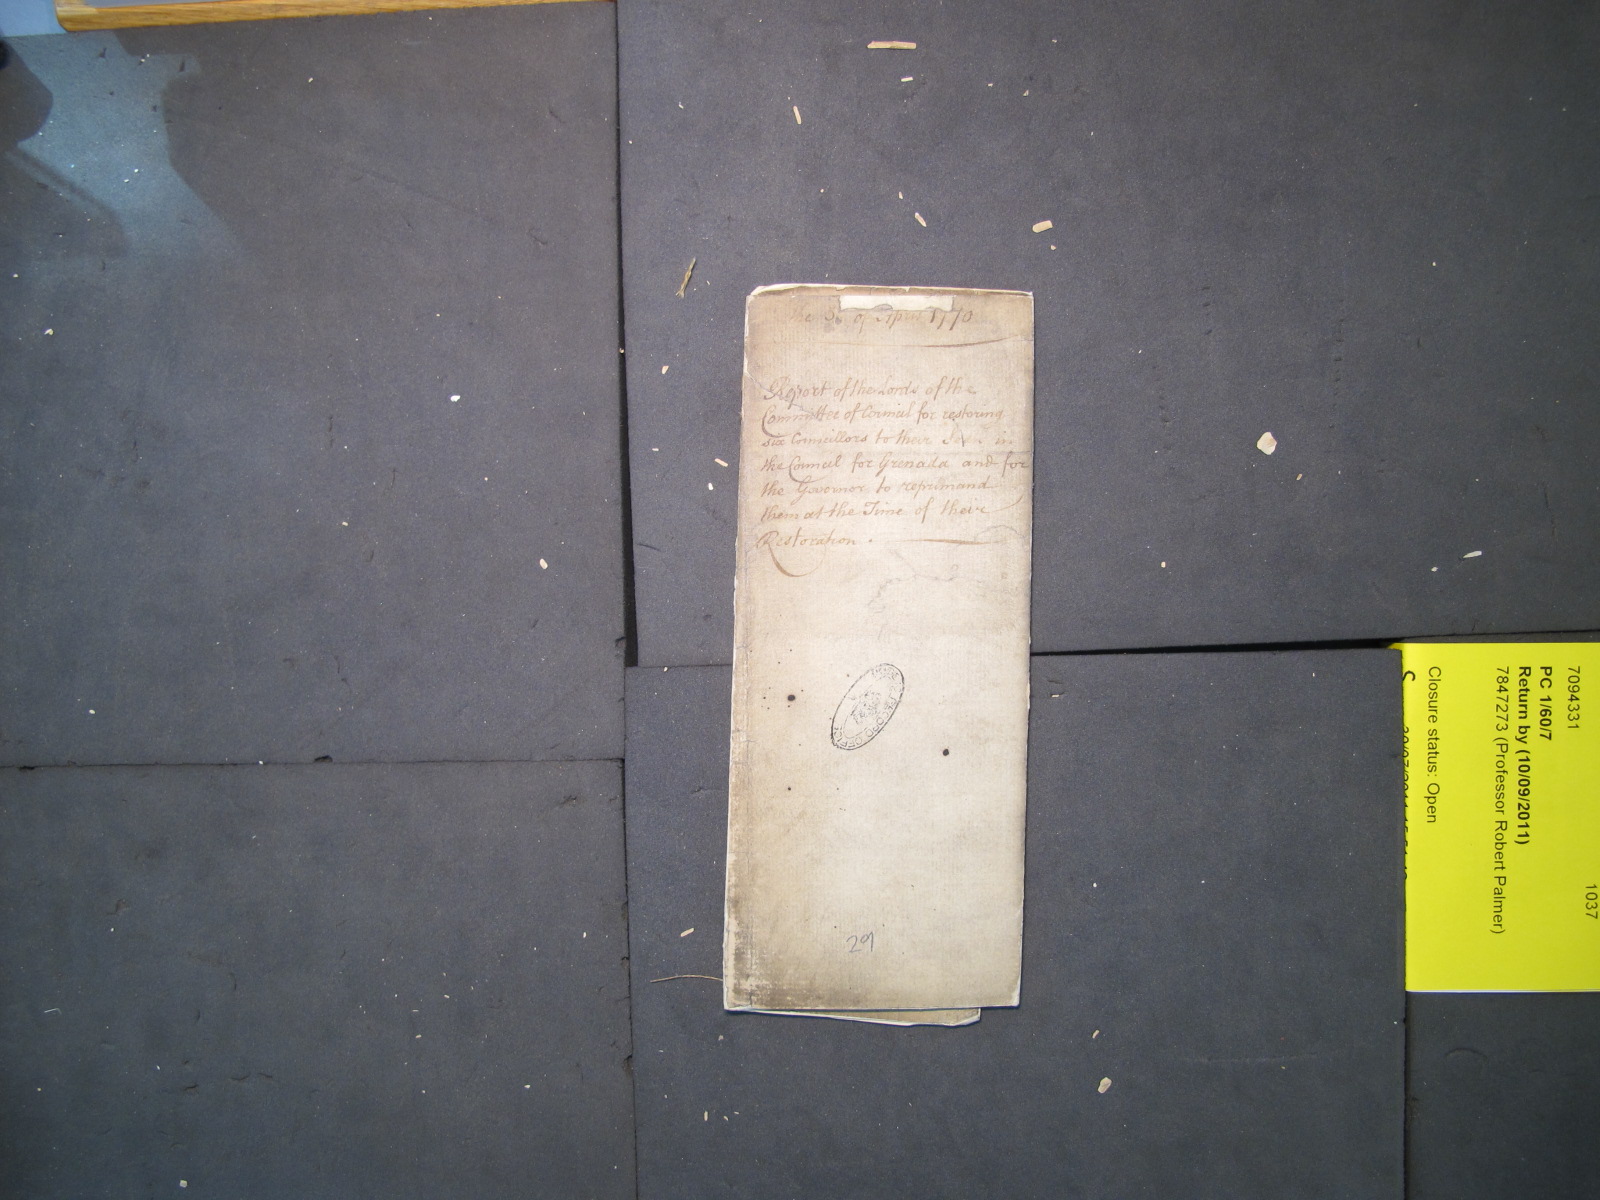 of April 1770
Report of the Lords of the
Committee of Council for restoring
six Councillors to their in
the Council for Grenada and for
the Governor to reprimand
them at the Time of their
Restoration.
29
7094331
PC 1/60/7
Return by (10/09/2011)
7847273 (Professor Robert Palmer)
Closure status: Open
1037